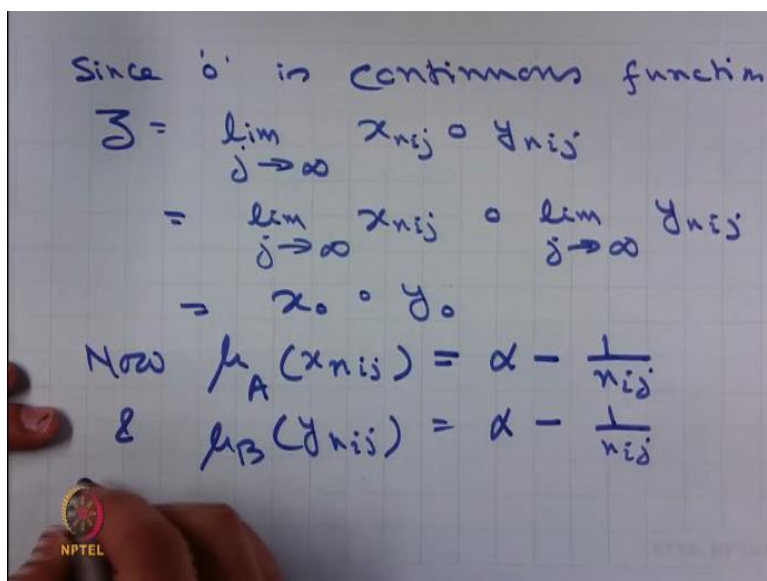 Since 'o' is continuous function
z = lim x_{nij} o y_{nij}
j → ∞
= lim x_{nij} o lim y_{nij}
j → ∞ j → ∞
= x_0 o y_0
Now μ_A (x_{nij}) = α - 1/n_{ij}
& μ_B (y_{nij}) = α - 1/n_{ij}
NPTEL